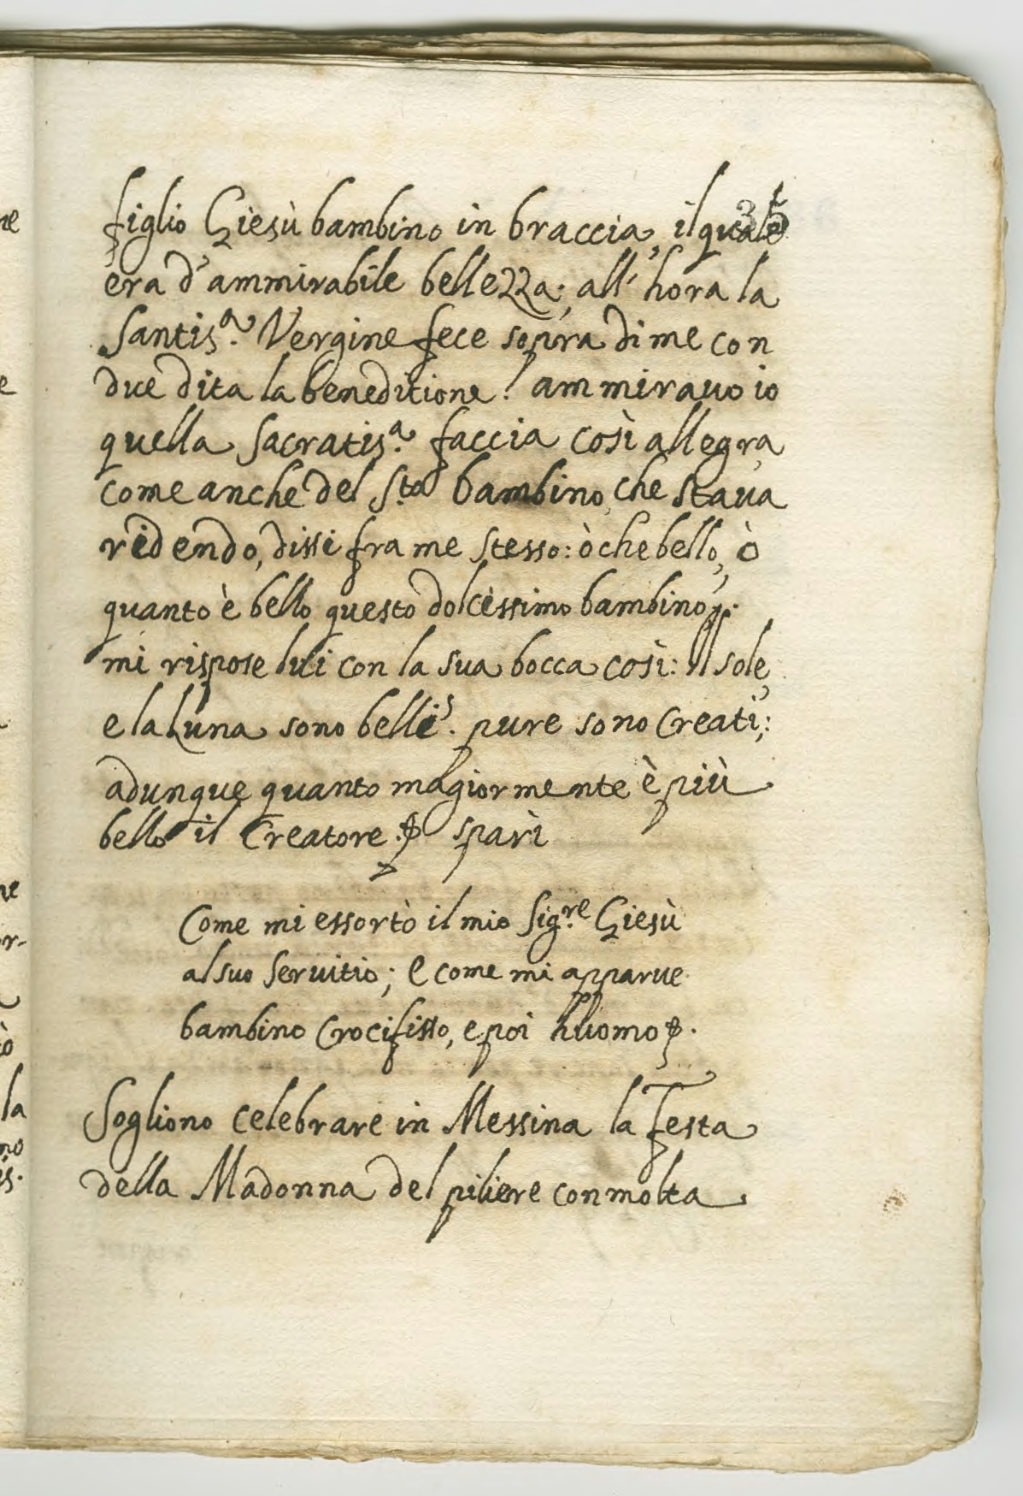 35
figlio Giesù bambino in braccia, il quale
era d'ammirabile bellezza; all'hora la
Santis.ª Vergine fece sopra di me con
due dita la beneditione. ammirauo io
quella Sacratis.ª faccia così allegra,
come anche del S.to bambino, che staua
ridendo, dissi fra me stesso: ò che bello, ò
quanto è bello questo dolcissimo bambino;
mi rispose lui con la sua bocca così: Il sole,
e la Luna sono belli. pure sono Creati;
adunque quanto magiormente è più
bello il Creatore. sparì
Come mi essortò il mio Sig.re Giesù
al suo Seruitio; e come mi apparue
bambino Crocifisso, e poi huomo.
Sogliono celebrare in Messina la festa
della Madonna del piliere con molta